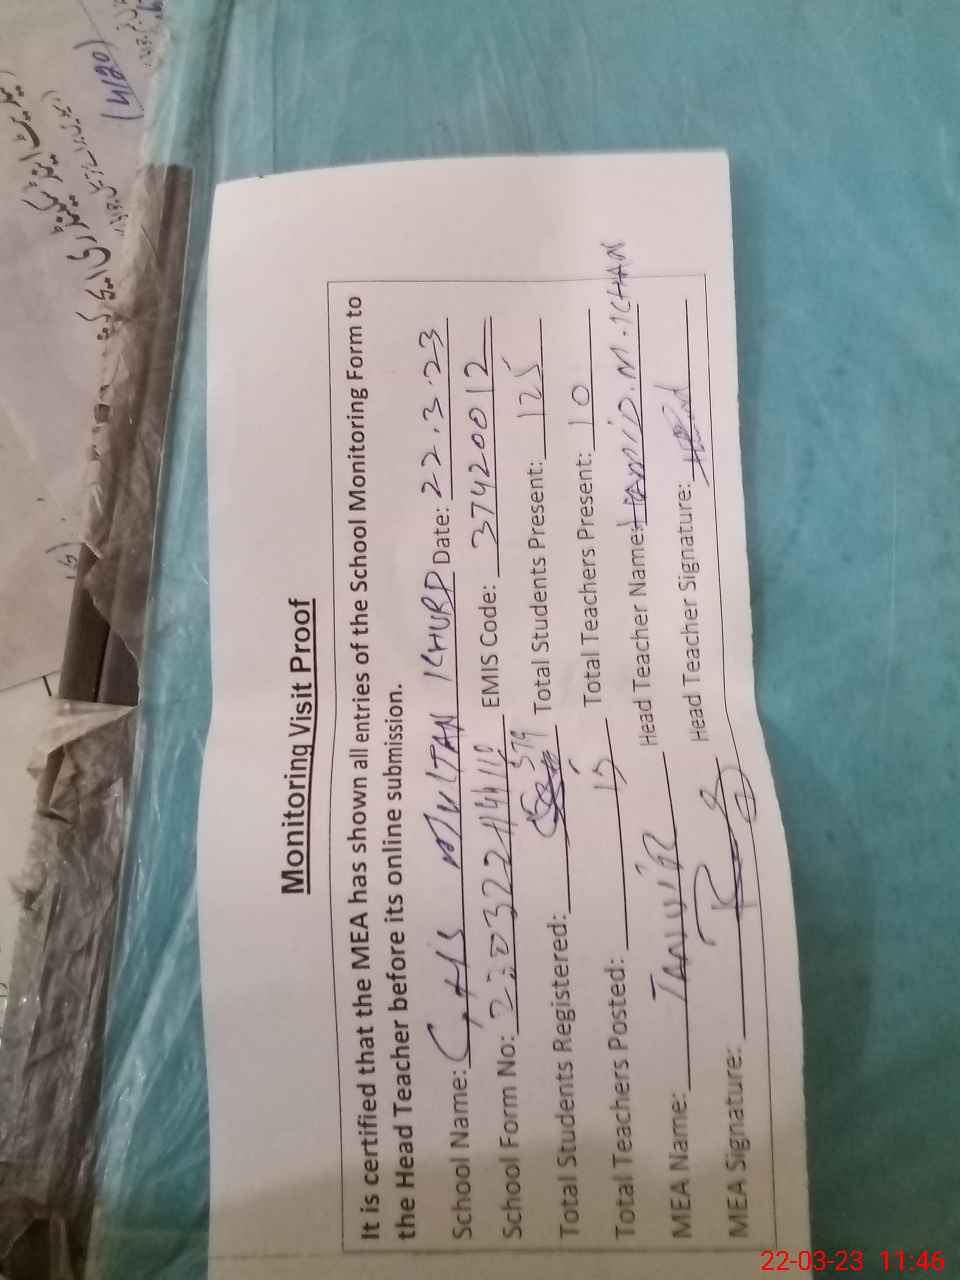 Monitoring Visit Proof
It is certified that the MEA has shown all entries of the School Monitoring Form to
the Head Teacher before its online submission.
School Name: GHS MULTAN KHURD Date: 22.3.23
School Form No: EMIS Code: 37420012
Total Students Registered: 379 Total Students Present: 125
Total Teachers Posted: 15 Total Teachers Present: 10
MEA Name: TANVIR Head Teacher Name: HAMID.M.KHAN
MEA Signature: Head Teacher Signature:
(4120)
22-03-23 11:46